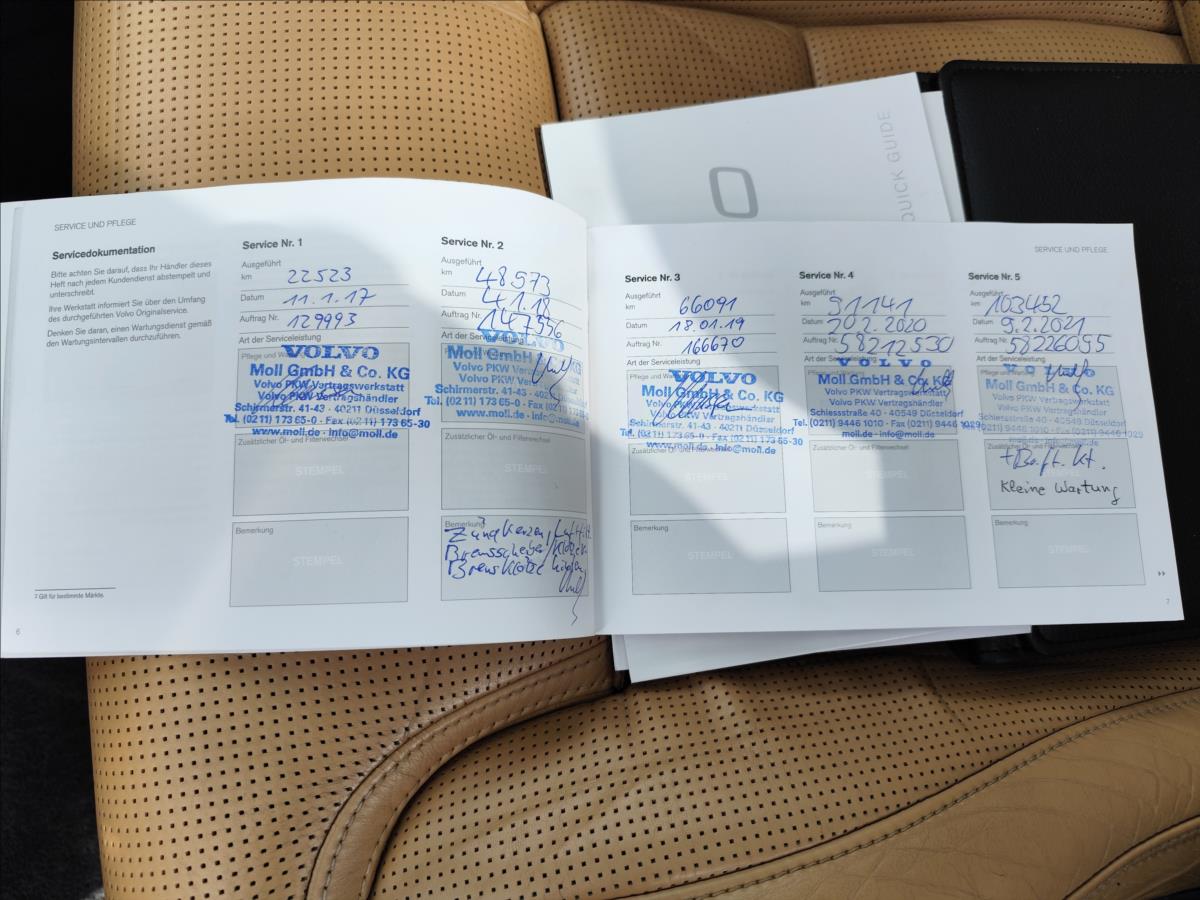 QUICK GUIDE
SERVICE UND PFLEGE
Servicedokumentation
Bitte achten Sie darauf, dass Ihr Händler dieses
Heft nach jedem Kundendienst abstempelt und
unterschreibt.
Ihre Werkstatt informiert Sie über den Umfang
des durchgeführten Volvo Originalservice.
Denken Sie daran, einen Wartungsdienst gemäß
den Wartungsintervallen durchzuführen.
2 Gilt für bestimmte Märkte.
6
Service Nr. 1
Ausgeführt
km 22523
Datum 11.1.17
Auftrag Nr. 129993
Art der Serviceleistung
Pflege und
VOLVO
Moll GmbH & Co. KG
Volvo PKW Vertragswerkstatt
Volvo PKW Vertragshändler
Schirmerstr. 41-43 - 40211 Düsseldorf
Tel. (0211) 173 65-0 - Fax (0211) 173 65-30
www.moll.de - info@moll.de
Zusätzlicher Öl- und Filterwechsel
STEMPEL
Bemerkung
STEMPEL
Service Nr. 2
Ausgeführt
km 48573
Datum 4.1.18
Auftrag Nr. 147556
Art der Serviceleistung
VOLVO
Moll GmbH
Volvo PKW
Volvo PKW
Schirmerstr. 41-43 - 402
Tel. (0211) 173 65-0 - Fax (0211)
www.moll.de - info@
Zusätzlicher Öl- und Filterwechsel
STEMPEL
Bemerkung
Zündkerzen,
Bremsscheiben
Bremsklötze
SERVICE UND PFLEGE
Service Nr. 3
Ausgeführt
km 66091
Datum 18.01.19
Auftrag Nr. 166670
Art der Serviceleistung
Pflege und
VOLVO
Moll GmbH & Co. KG
Volvo PKW Vertragswerkstatt
Volvo PKW Vertragshändler
Schirmerstr. 41-43 - 40211 Düsseldorf
Tel. (0211) 173 65-0 - Fax (0211) 173 65-30
www.moll.de - info@moll.de
Zusätzlicher Öl- und Filterwechsel
STEMPEL
Bemerkung
STEMPEL
Service Nr. 4
Ausgeführt
km 91141
Datum 20.2.2020
Auftrag Nr. 58212530
Art der Serviceleistung
VOLVO
Moll GmbH & Co. KG
Volvo PKW Vertragswerkstatt
Volvo PKW Vertragshändler
Schiessstraße 40 - 40549 Düsseldorf
Tel. (0211) 9446 1010 - Fax (0211) 9446 1029
moll.de - info@moll.de
Zusätzlicher Öl- und Filterwechsel
STEMPEL
Bemerkung
STEMPEL
Service Nr. 5
Ausgeführt
km 103452
Datum 9.2.2021
Auftrag Nr. 58226095
Art der Serviceleistung
Moll GmbH & Co. KG
Volvo PKW Vertragswerkstatt
Volvo PKW Vertragshändler
Schiessstraße 40 - 40549 Düsseldorf
Tel. (0211) 9446 1010 - Fax (0211) 9446 1029
moll.de - info@moll.de
Kleine Wartung
Bemerkung
STEMPEL
7